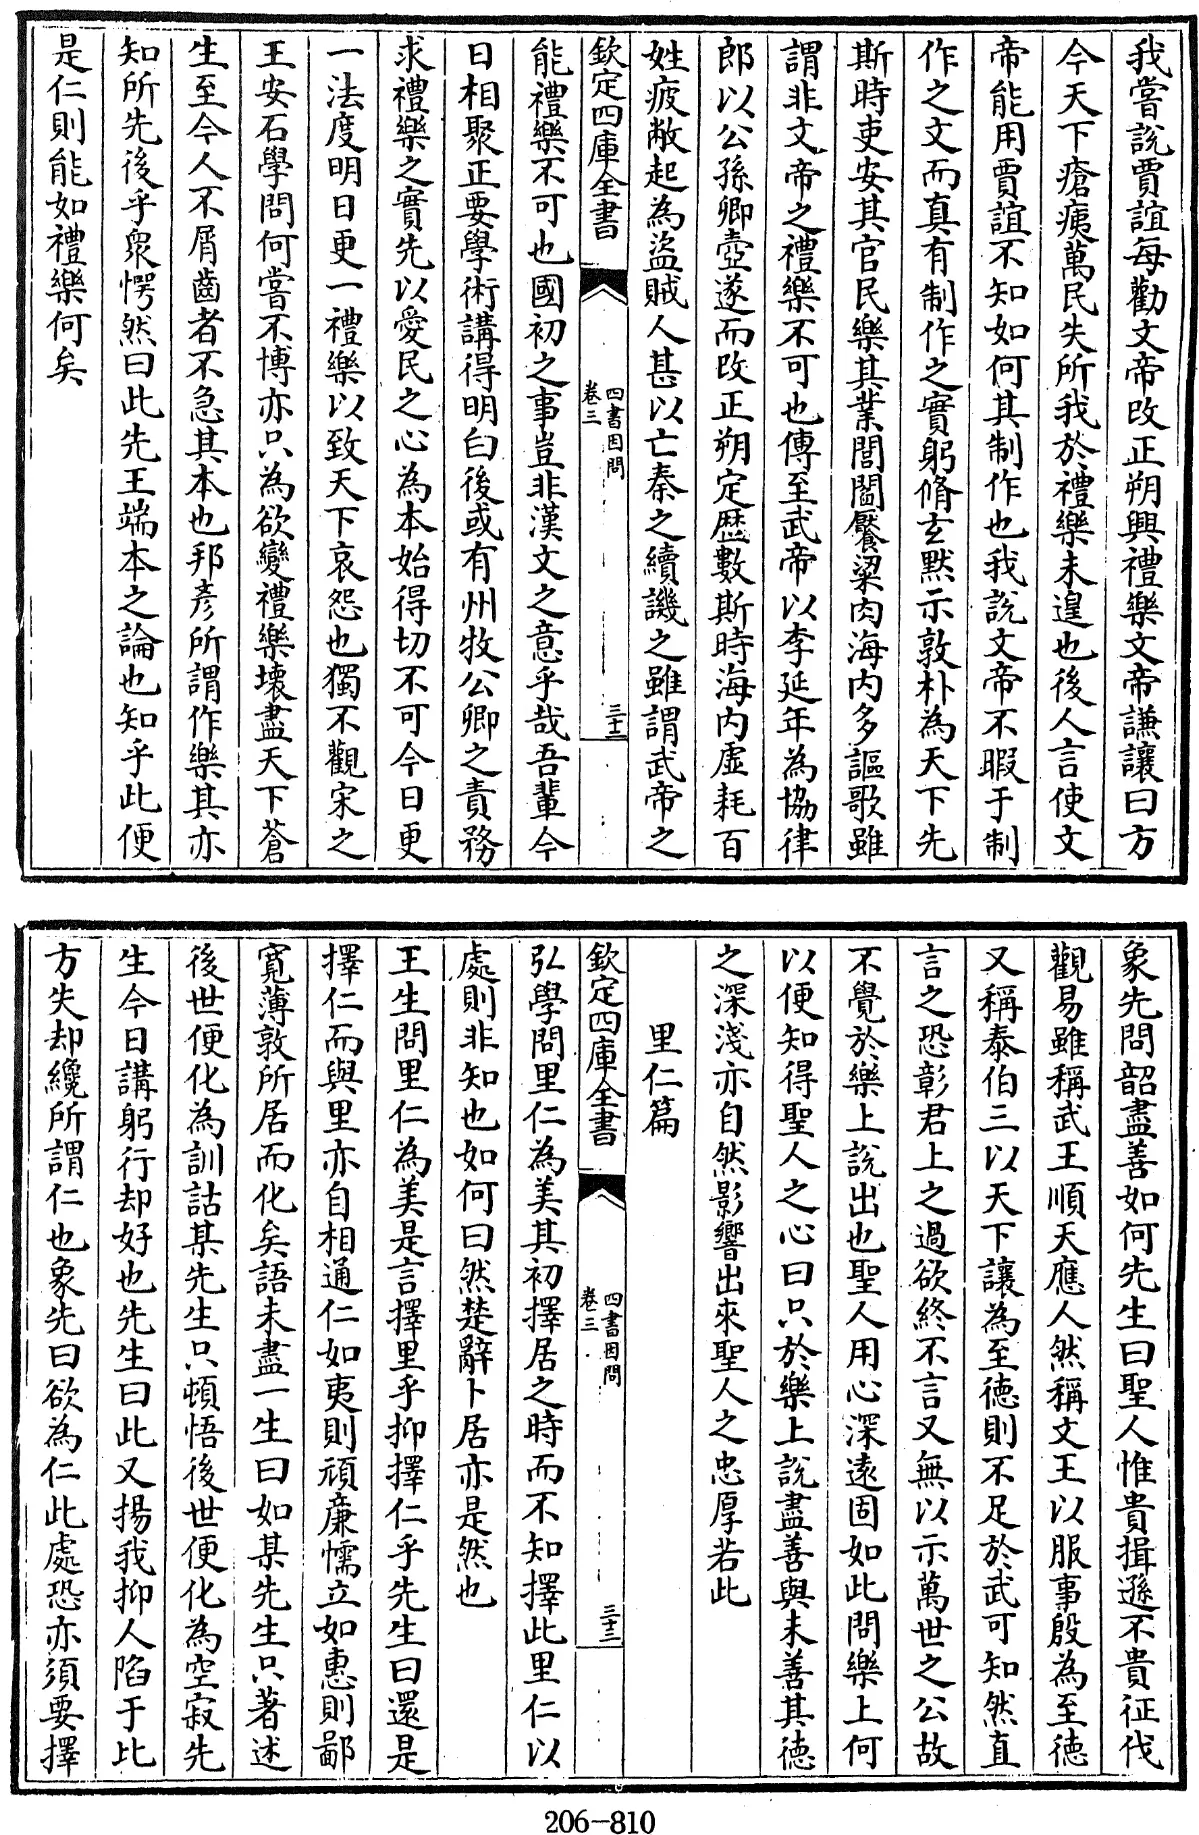 我嘗說賈誼每勸文帝改正朔興禮樂文帝謙讓曰方
今天下瘡痍萬民失所我於禮樂未遑也後人言使文
帝能用賈誼不知如何其制作也我說文帝不暇于制
作之文而真有制作之實躬脩玄默示敦朴為天下先
斯時吏安其官民樂其業閭閻饜粱肉海内多謳歌雖
謂非文帝之禮樂不可也傳至武帝以李延年為協律
郎以公孫卿壺遂而改正朔定歴數斯時海内虚耗百
姓疲敝起為盜賊人甚以亡秦之續譏之雖謂武帝之
欽定四庫全書
四書因問
卷三
三十二
能禮樂不可也國初之事豈非漢文之意乎哉吾輩今
日相聚正要學術講得明白後或有州牧公卿之責務
求禮樂之實先以愛民之心為本始得切不可今日更
一法度明日更一禮樂以致天下哀怨也獨不觀宋之
王安石學問何嘗不博亦只為欲變禮樂壊盡天下蒼
生至今人不屑齒者不急其本也邦彦所謂作樂其亦
知所先後乎衆愕然曰此先王端本之論也知乎此便
是仁則能如禮樂何矣
象先問韶盡善如何先生曰聖人惟貴揖遜不貴征伐
觀易雖稱武王順天應人然稱文王以服事殷為至徳
又稱泰伯三以天下讓為至徳則不足於武可知然直
言之恐彰君上之過欲終不言又無以示萬世之公故
不覺於樂上說出也聖人用心深遠固如此問樂上何
以便知得聖人之心曰只於樂上說盡善與未善其徳
之深淺亦自然影響出來聖人之忠厚若此
里仁篇
欽定四庫全書
四書因問
卷三
三十三
弘學問里仁為美其初擇居之時而不知擇此里仁以
處則非知也如何曰然楚辭卜居亦是然也
王生問里仁為美是言擇里乎抑擇仁乎先生曰還是
擇仁而與里亦自相通仁如夷則頑廉懦立如惠則鄙
寛薄敦所居而化矣語未盡一生曰如某先生只著述
後世便化為訓詁某先生只頓悟後世便化為空寂先
生今日講躬行却好也先生曰此又揚我抑人陷于此
方失却纔所謂仁也象先曰欲為仁此處恐亦須要擇
206-810